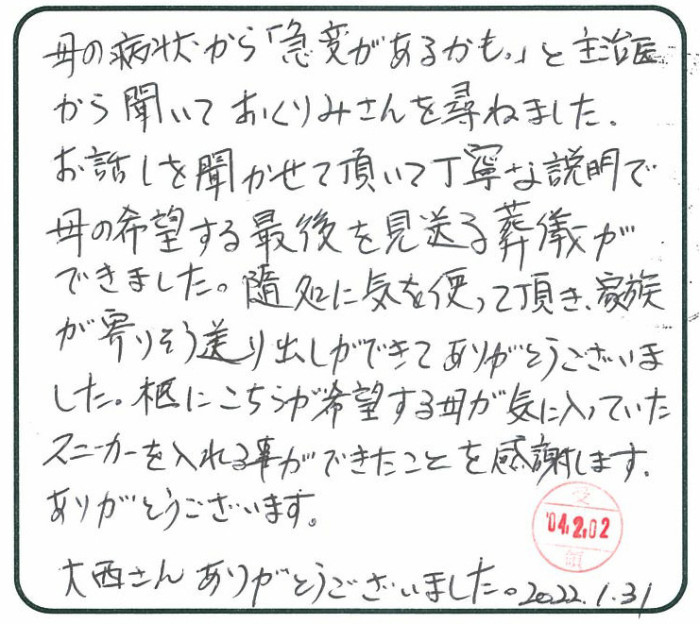 母の病状から「急変があるかも。」と主治医
から聞いておくりみさんを尋ねました。
お話しを聞かせて頂いて丁寧な説明で
母の希望する最後を見送る葬儀が
できました。随処に気を使って頂き、家族
が寄りそう送り出しができてありがとうございま
した。柩にこちらが希望する母が気に入っていた
スニーカーを入れる事ができたことを感謝します。
ありがとうございます。
'04.2.02
大西さんありがとうございました。2022.1.31